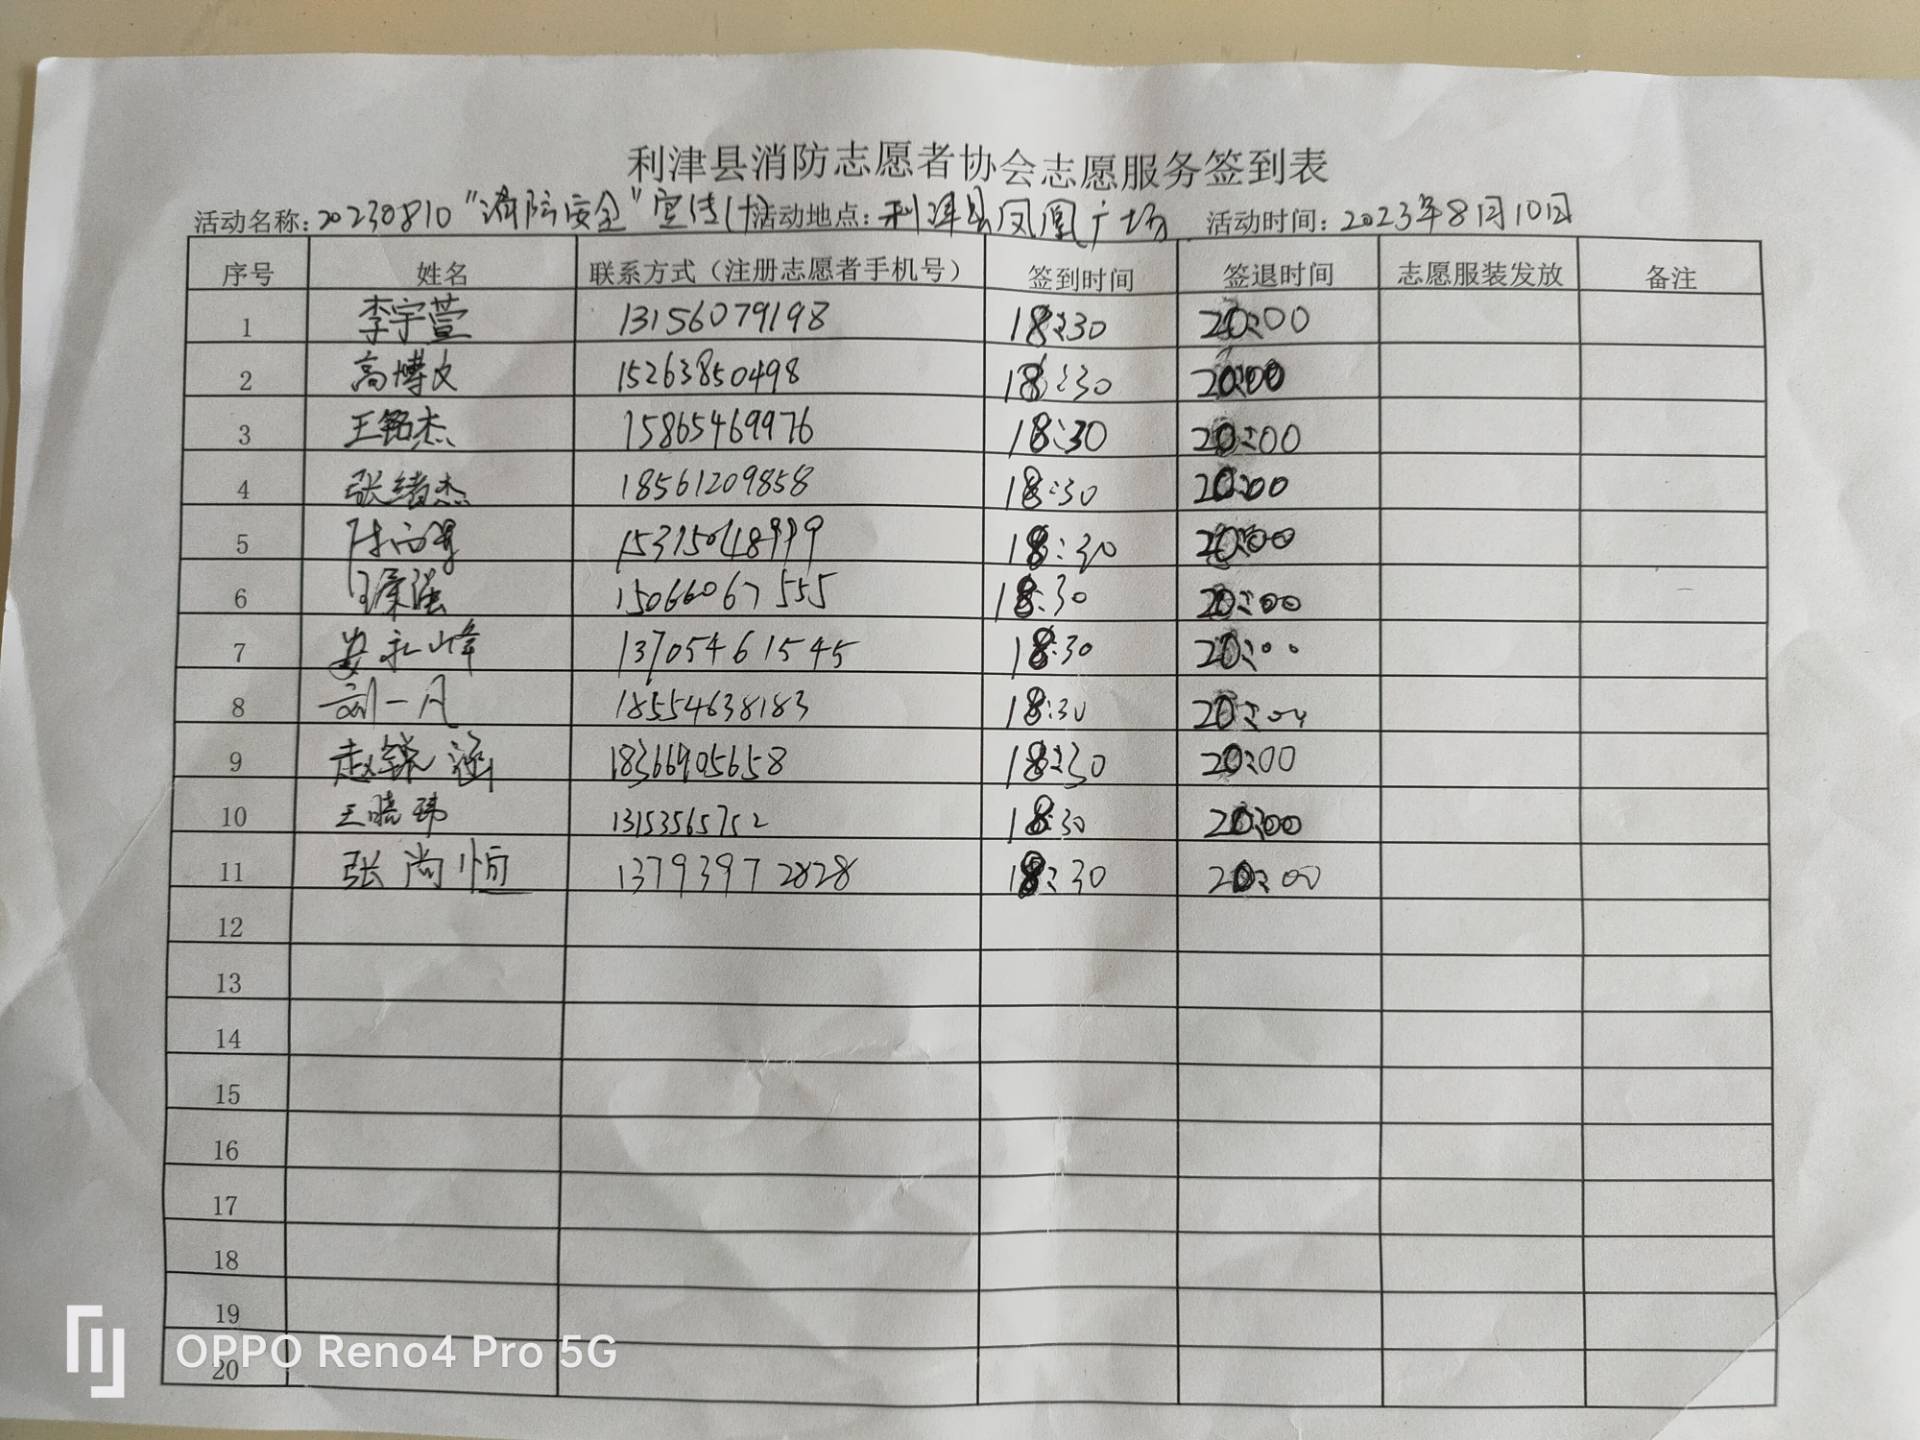 利津县消防志愿者协会志愿服务签到表
活动名称: 20230810 "消防安全" 宣传(十) 活动地点: 利津县凤凰广场 活动时间: 2023年8月10日
序号 姓名 联系方式（注册志愿者手机号） 签到时间 签退时间 志愿服装发放 备注
1 李宇萱 13156079198 18:30 20:00
2 高博文 15263850498 18:30 20:00
3 王铭杰 15865469976 18:30 20:00
4 张绪杰 18561209858 18:30 20:00
5 18:30 20:00
6 15066067555 18:30 20:00
7 13705461545 18:30 20:00
8 刘一凡 18554638183 18:30 20:00
9 赵铱涵 18366905658 18:30 20:00
10 王晓玮 13153565752 18:30 20:00
11 张尚恒 13793972828 18:30 20:00
12
13
14
15
16
17
18
19
20
OPPO Reno4 Pro 5G